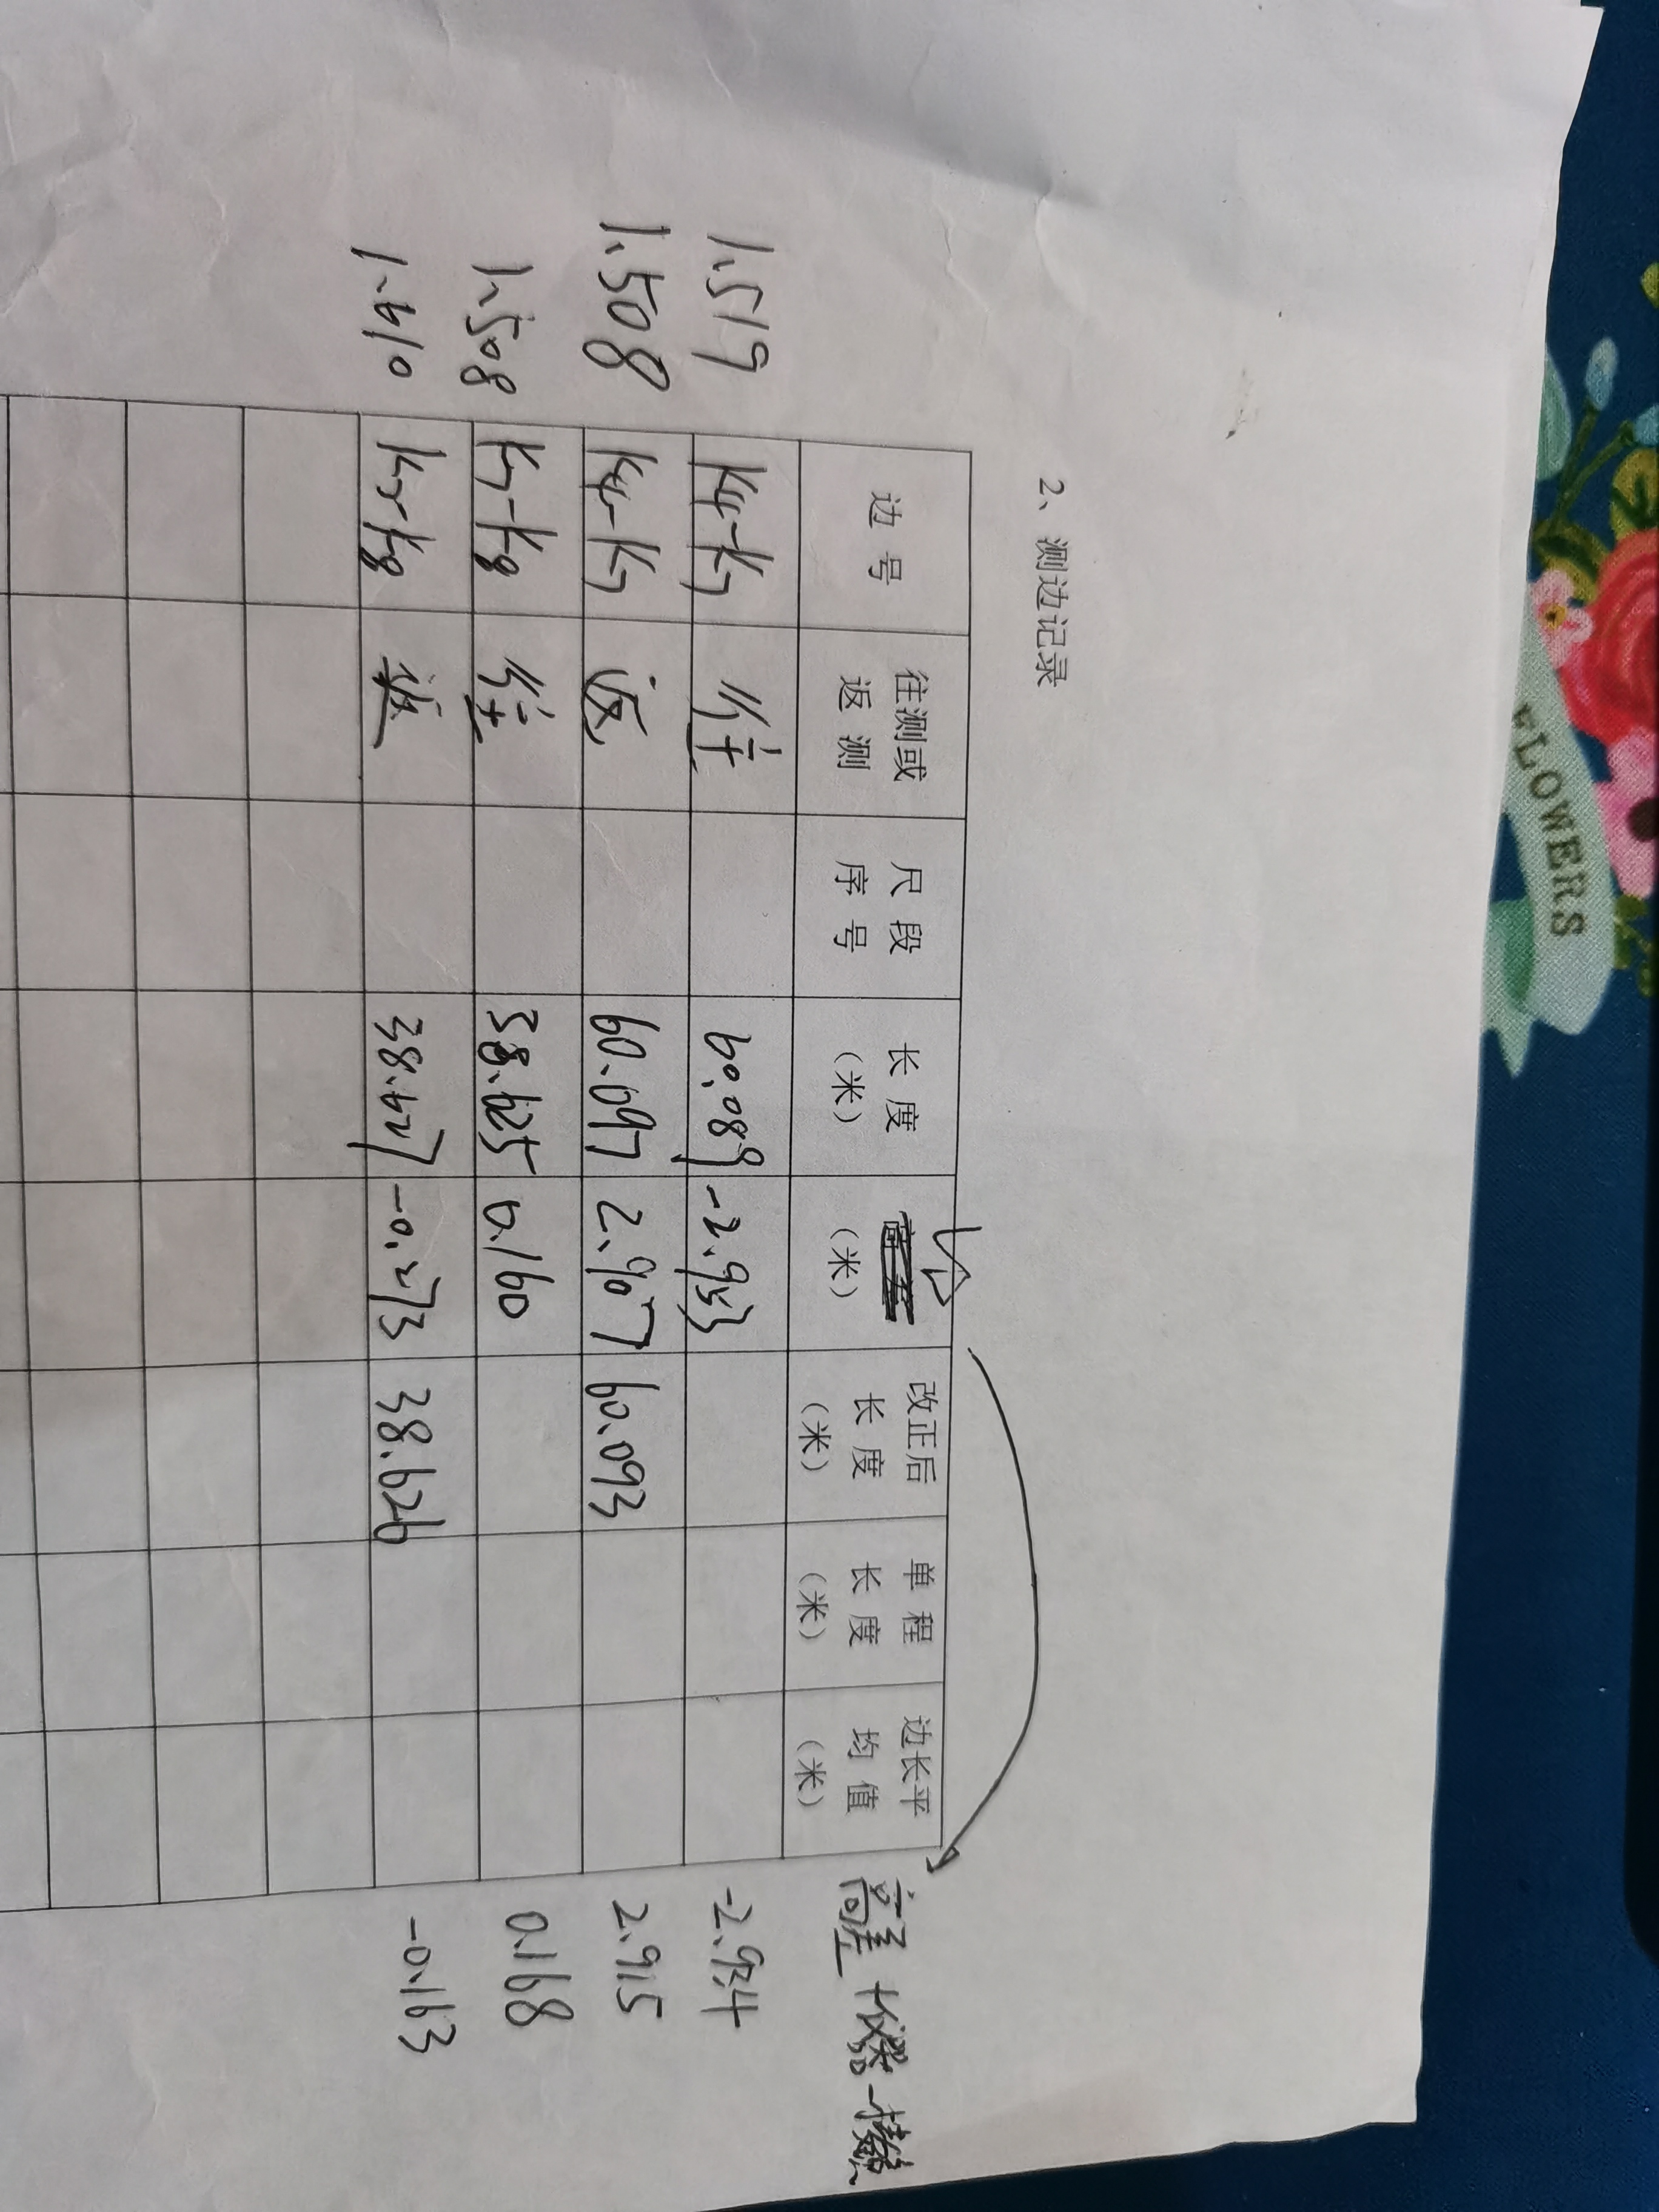 FLOWERS
2、测边记录
边 号 往测或返 测 尺 段序 号 长 度（米） VD（米） 改正后长 度（米） 单 程长 度（米） 边长平均 值（米） 高差+仪器-棱镜
1.519 K4-K7 往 60.089 -2.953 -2.934
1.508 K4-K7 返 60.097 2.907 60.093 2.915
1.508 K7-K8 往 38.625 0.160 0.168
1.610 K7-K8 返 38.627 -0.273 38.626 -0.163